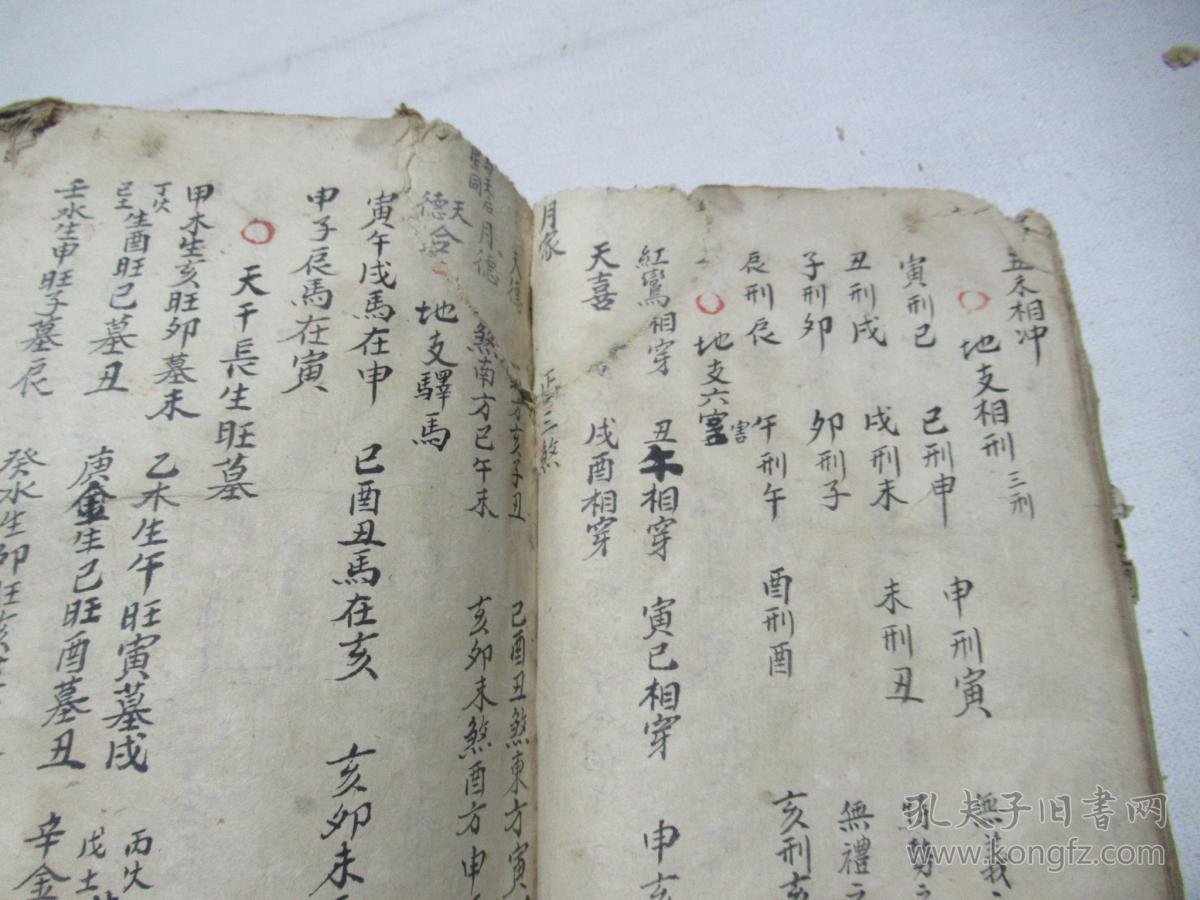 丑未相冲
地支相刑 三刑
寅刑巳 巳刑申 申刑寅 無
丑刑戌 戌刑未 未刑丑 勢之
子刑卯 卯刑子 無禮之
辰刑辰 午刑午 酉刑酉 亥刑亥
地支六害 害
紅鸞相穿 丑午相穿 寅巳相穿 申亥
天喜 戌酉相穿
月家 三煞
天德 方亥子丑 巳酉丑煞東方寅
月德 煞南方巳午未 亥卯未煞酉方申
天德合 地支驛馬
寅午戌馬在申 巳酉丑馬在亥 亥卯未
申子辰馬在寅
天干長生旺墓
甲木生亥旺卯墓未 乙木生午旺寅墓戌 丙火戊土
丁火己土生酉旺巳墓丑 庚金生巳旺酉墓丑 辛金
壬水生申旺子墓辰 癸水生卯旺亥
孔夫子旧书网
www.kongfz.com